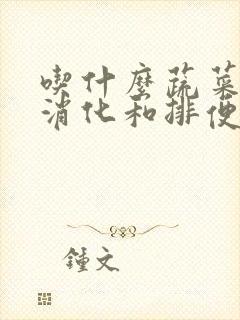 喫什麼蔬菜
消化和排便
鍾文